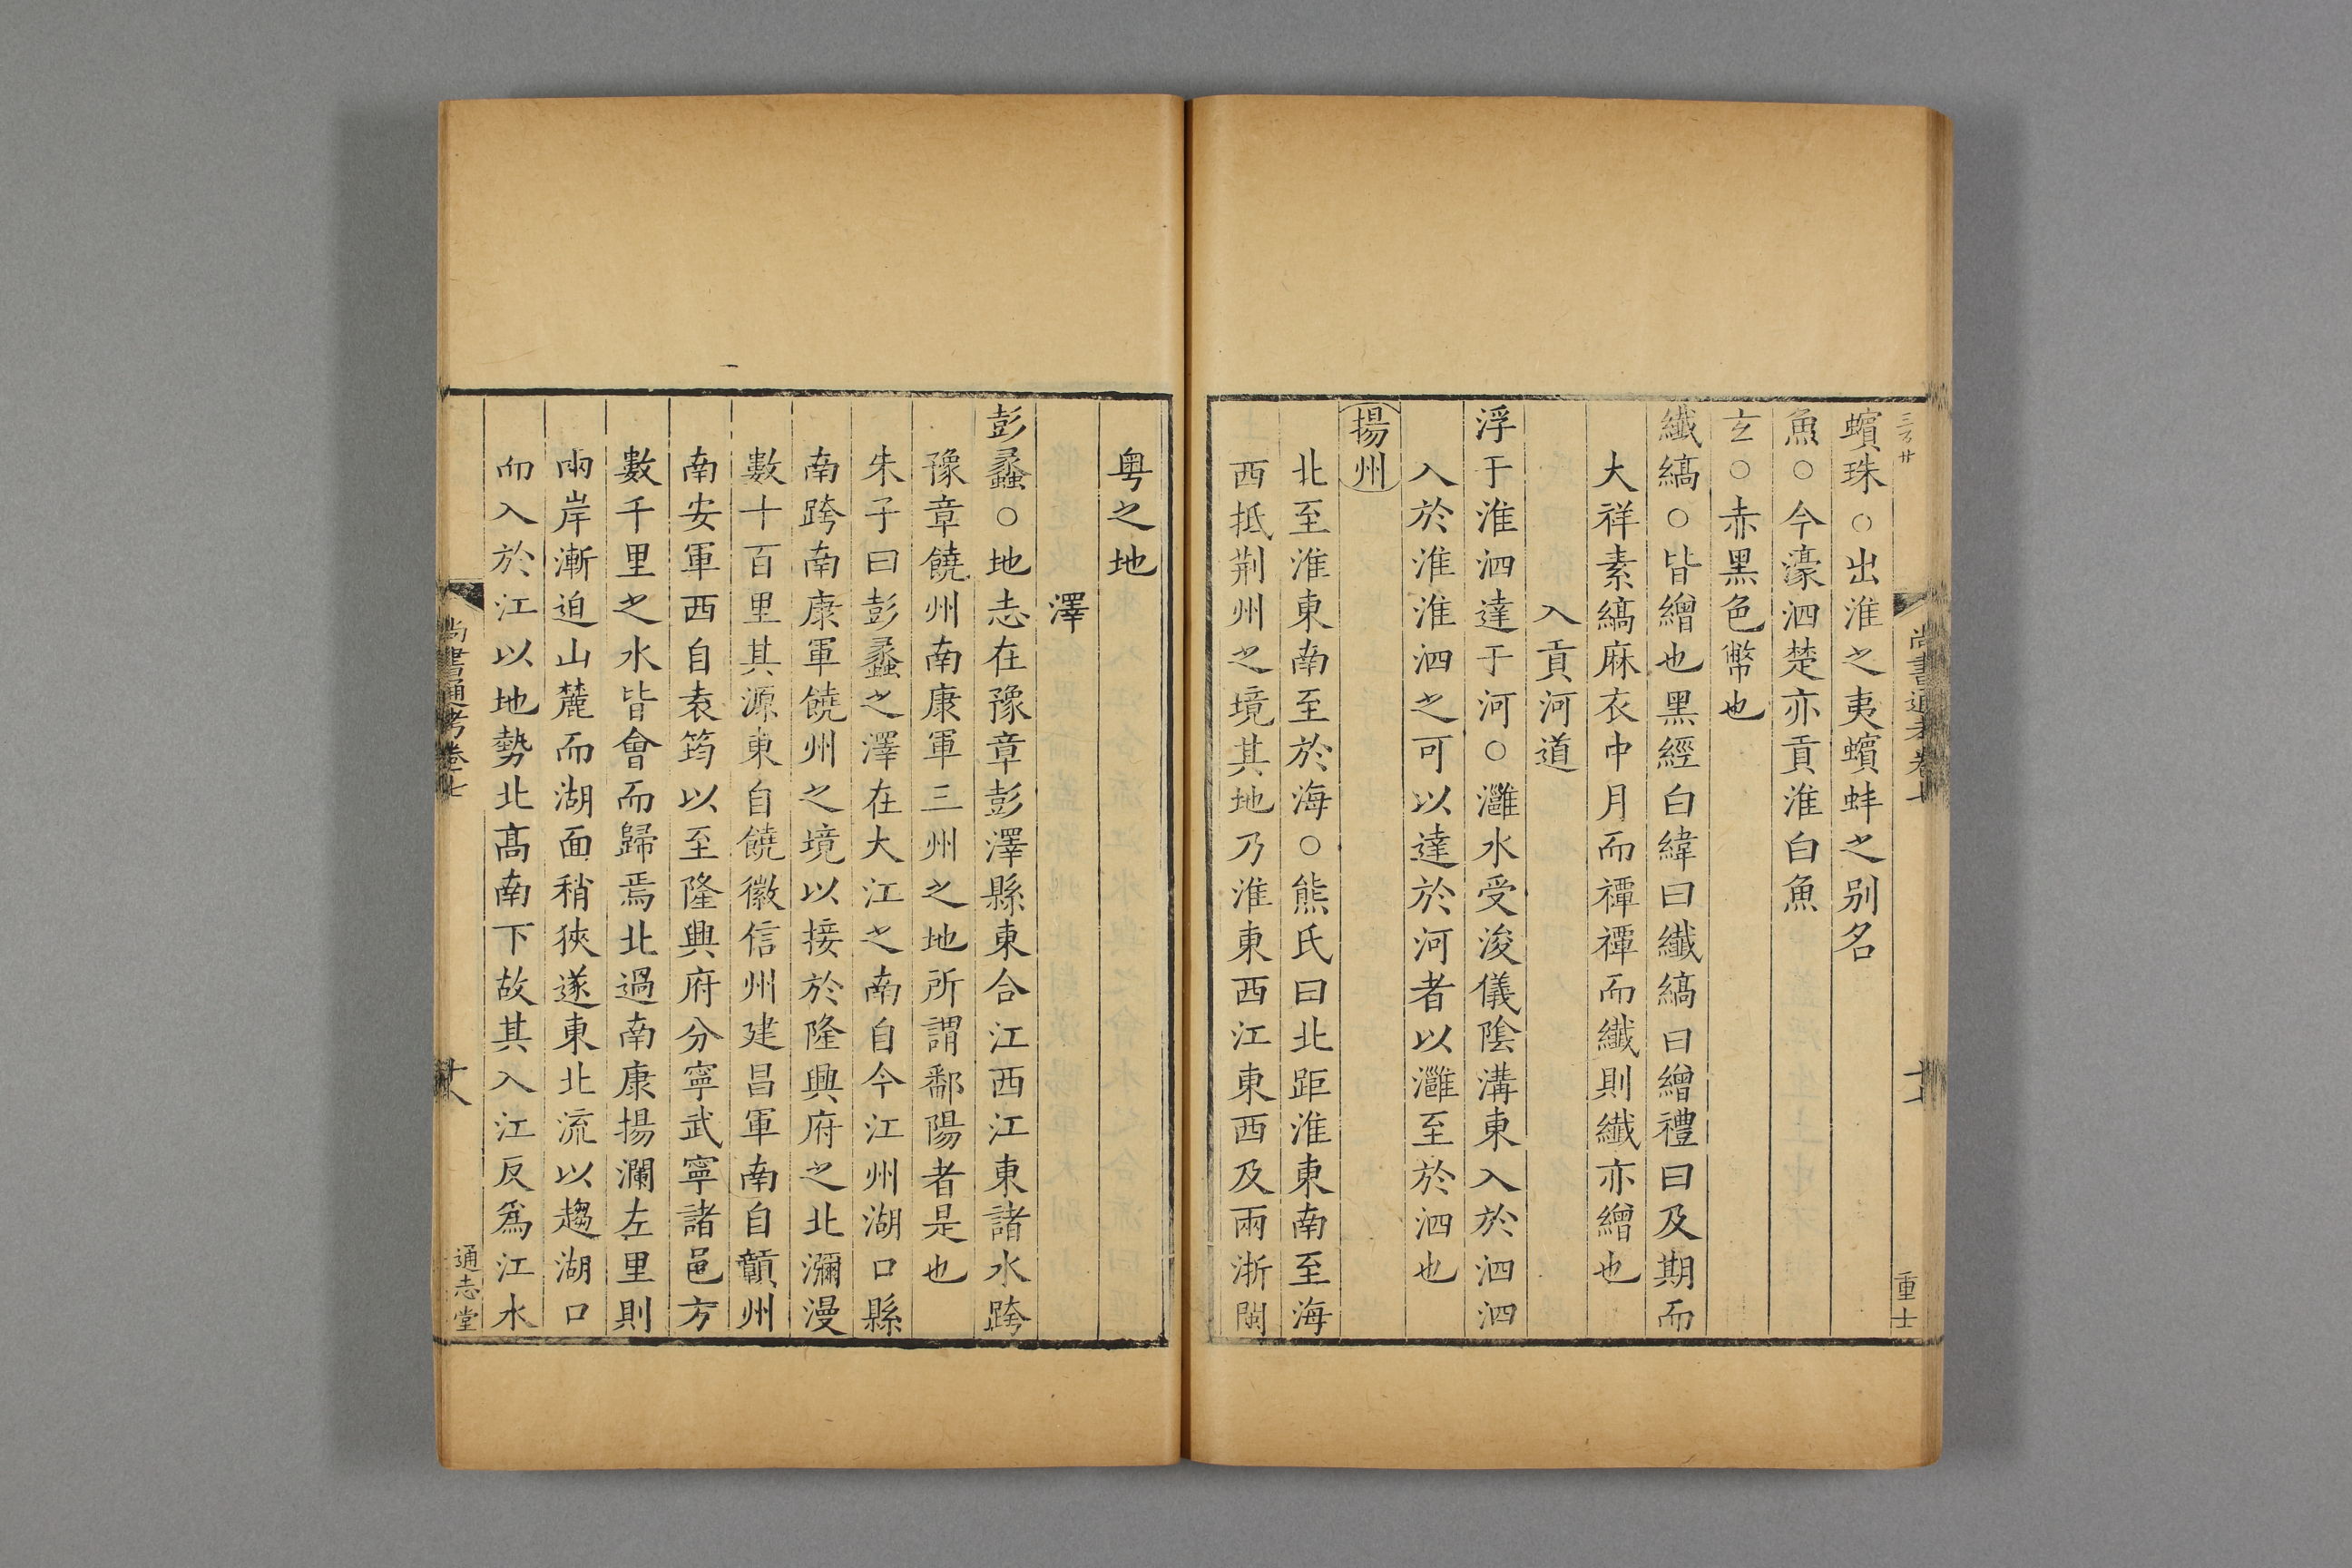 蠙珠○出淮之夷蠙蚌之别名
魚○今濠泗楚亦貢淮白魚
玄○赤黑色幣也
纖縞○皆繒也黑經白緯曰纖縞曰繒禮曰及期而
大祥素縞麻衣中月而禫禫而纖則纖亦繒也
入貢河道
浮于淮泗達于河○灉水受浚儀陰溝東入於泗泗
入於淮淮泗之可以達於河者以灉至於泗也
揚州
北至淮東南至於海○熊氏曰北距淮東南至海
西抵荆州之境其地乃淮東西江東西及兩浙閩
粤之地
澤
彭蠡○地志在豫章彭澤縣東合江西江東諸水跨
豫章饒州南康軍三州之地所謂鄱陽者是也
朱子曰彭蠡之澤在大江之南自今江州湖口縣
南跨南康軍饒州之境以接於隆興府之北瀰漫
數十百里其源東自饒徽信州建昌軍南自贑州
南安軍西自袁筠以至隆興府分寧武寧諸邑方
數千里之水皆會而歸焉北過南康揚瀾左里則
兩岸漸迫山麓而湖面稍狹遂東北流以趨湖口
而入於江以地勢北髙南下故其入江反爲江水
尚書通考卷七
通志堂